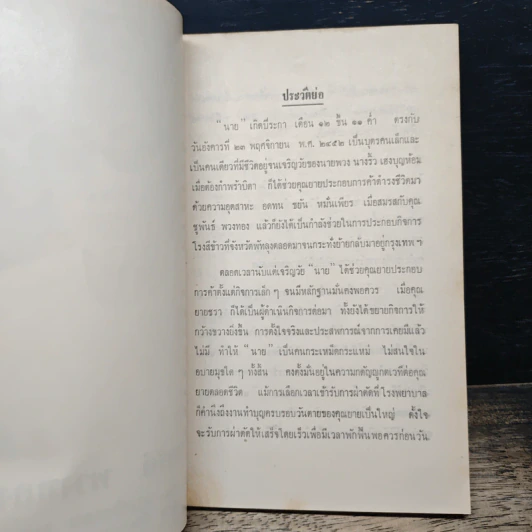 ประวัติย่อ
“นาย” เกิดปีระกา เดือน ๑๒ ขึ้น ๑๑ ค่ำ ตรงกับ
วันอังคารที่ ๒๓ พฤศจิกายน พ.ศ. ๒๔๕๒ เป็นบุตรคนเล็กและ
เป็นคนเดียวที่มีชีวิตอยู่จนเจริญวัยของนายพวง นางริ้ว เฮงบุญห้อม
เมื่อต้องกำพร้าบิดา ก็ได้ช่วยคุณยายประกอบการค้าดำรงชีวิตมา
ด้วยความอุตสาหะ อดทน ขยัน หมั่นเพียร เมื่อสมรสกับคุณ
ชูพันธ์ พวงทอง แล้วก็ยังได้เป็นกำลังช่วยในการประกอบกิจการ
โรงสีข้าวที่จังหวัดพัทลุงตลอดมาจนกระทั่งย้ายกลับมาอยู่กรุงเทพ ฯ
ตลอดเวลานับแต่เจริญวัย “นาย” ได้ช่วยคุณยายประกอบ
การค้าตั้งแต่กิจการเล็ก ๆ จนมีหลักฐานมั่นคงพอควร เมื่อคุณ
ยายชรา ก็ได้เป็นผู้ดำเนินกิจการต่อมา ทั้งยังได้ขยายกิจการให้
กว้างขวางยิ่งขึ้น การตั้งใจจริงและประสพการณ์จากการเคยมีแล้ว
ไม่มี ทำให้ “นาย” เป็นคนกระเหม็ดกระแหม่ ไม่สนใจใน
อบายมุขใด ๆ ทั้งสิ้น คงตั้งมั่นอยู่ในความกตัญญูกตเวทีต่อคุณ
ยายตลอดชีวิต แม้การเลือกเวลาเข้ารับการผ่าตัดที่โรงพยาบาล
ก็คำนึงถึงงานทำบุญครบรอบวันตายของคุณยายเป็นใหญ่ ตั้งใจ
จะรับการผ่าตัดให้เสร็จโดยเร็วเพื่อมีเวลาพักฟื้นพอควรก่อนวัน